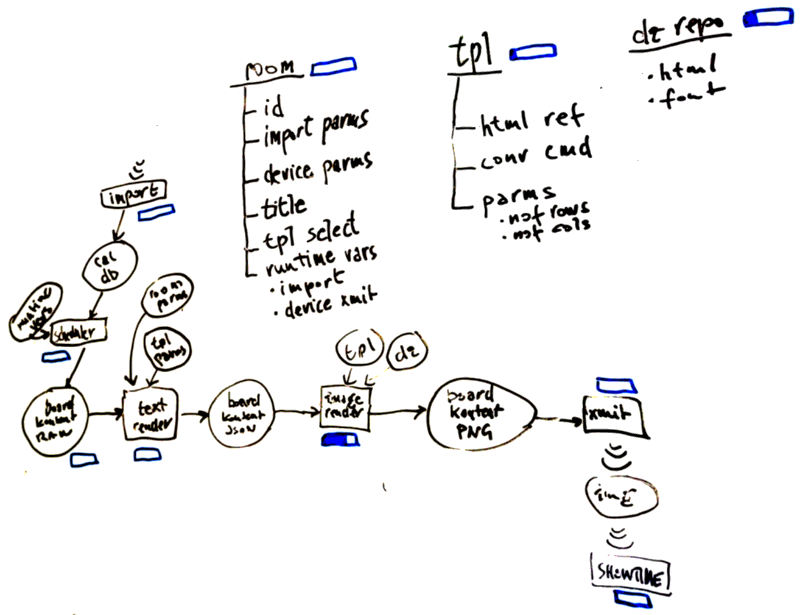 room
id
import parms
device parms
title
tpl select
runtime vars
• import
• device xmit
tpl
html ref
conv cmd
parms
• nof rows
• nof cols
dz repo
• html
• font
import
cal
db
runtime
vars
scheduler
room
parms
tpl
parms
board
kontent
RAW
text
render
board
kontent
JSON
tpl
dz
image
render
board
kontent
PNG
xmit
SHOWTIME